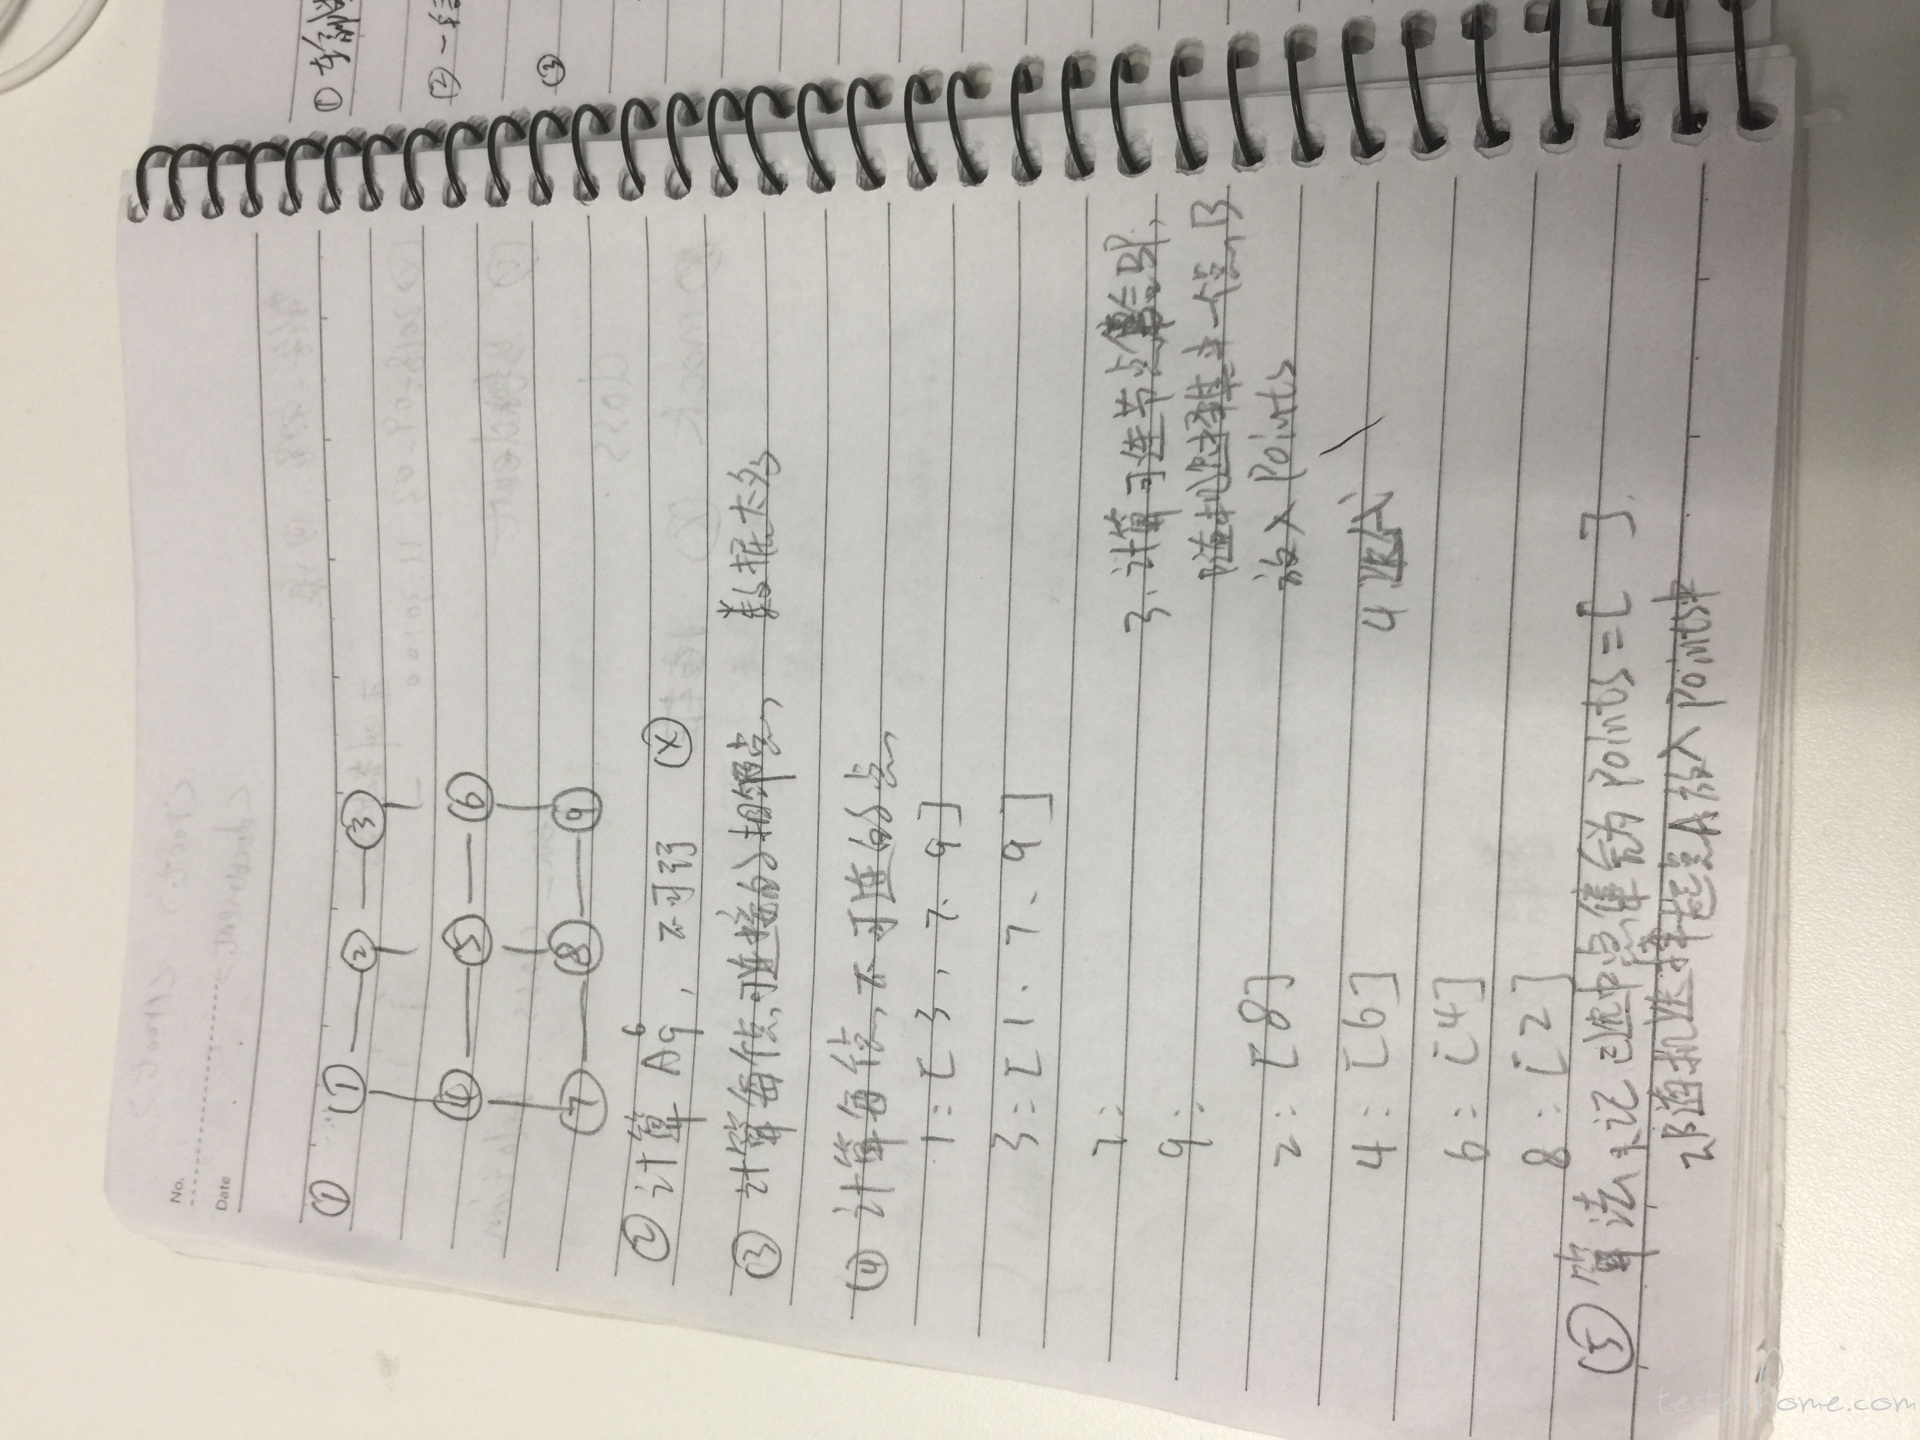 No.
Date
①
① ② ③
④ ⑤ ⑥
⑦ ⑧ ⑨
② 计算 A⁶₉, 不可弱 ⊗
③ 计算每个点可连接的相邻点, 数据太多
④ 计算每个点不可连的点
1: [3, 7, 9]
3: [1, 7, 9]
7:
9:
2: [8]
4: [6]
6: [4]
8: [2]
3、计算可连节点集合BP,
随机选择一个点B
放入Points
4 从
⑤ 算法: 1.记已选中点集合为 Points = [ ].
2.随机选择起点A放入Points中
①
②
③
testerhome.com